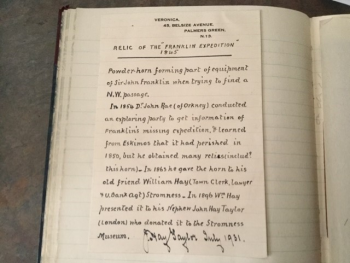 VERONICA,
45, BELSIZE AVENUE,
PALMERS GREEN,
N.13
RELIC OF THE FRANKLIN EXPEDITION
1845
Powder-horn forming part of equipment
of Sir John Franklin when trying to find a
N.W. passage.
In 1854 Dr. John Rae (of Orkney) conducted
an exploring party to get information of
Franklin's missing expedition, & learned
from Eskimos that it had perished in
1850, but he obtained many relics (includg
this horn). — In 1863 he gave the horn to his
old friend William Hay (Town Clerk, Lawyer
& U. Bank Agt) Stromness. — In 1896 Wm Hay
presented it to his Nephew John Hay Taylor
(London) who donated it to the Stromness
Museum. J. Hay Taylor July 1931.